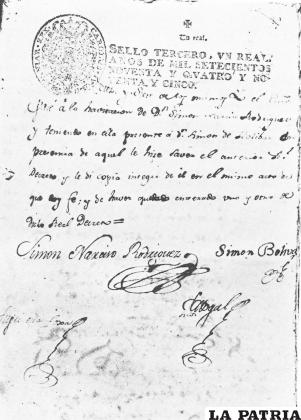 Un real.
SELLO TERCERO, VN REAL
AÑOS DE MIL SETECIENTOS
NOVENTA Y QVATRO Y NO-
VENTA Y CINCO.
à la havitacion de Dn Simon Narciso Rodriguez
y teniendo en ella presente á Dn Simon de Bolibar en
presencia de aquel le hize saver el anterior Rl
Decreto y le di copia integra de él en el mismo acto de
que doy fe; y de haver quedado enterado uno y otro de
dicho Real Decreto =
Simon Narciso Rodriguez
Simon Bolivar
LA PATRIA